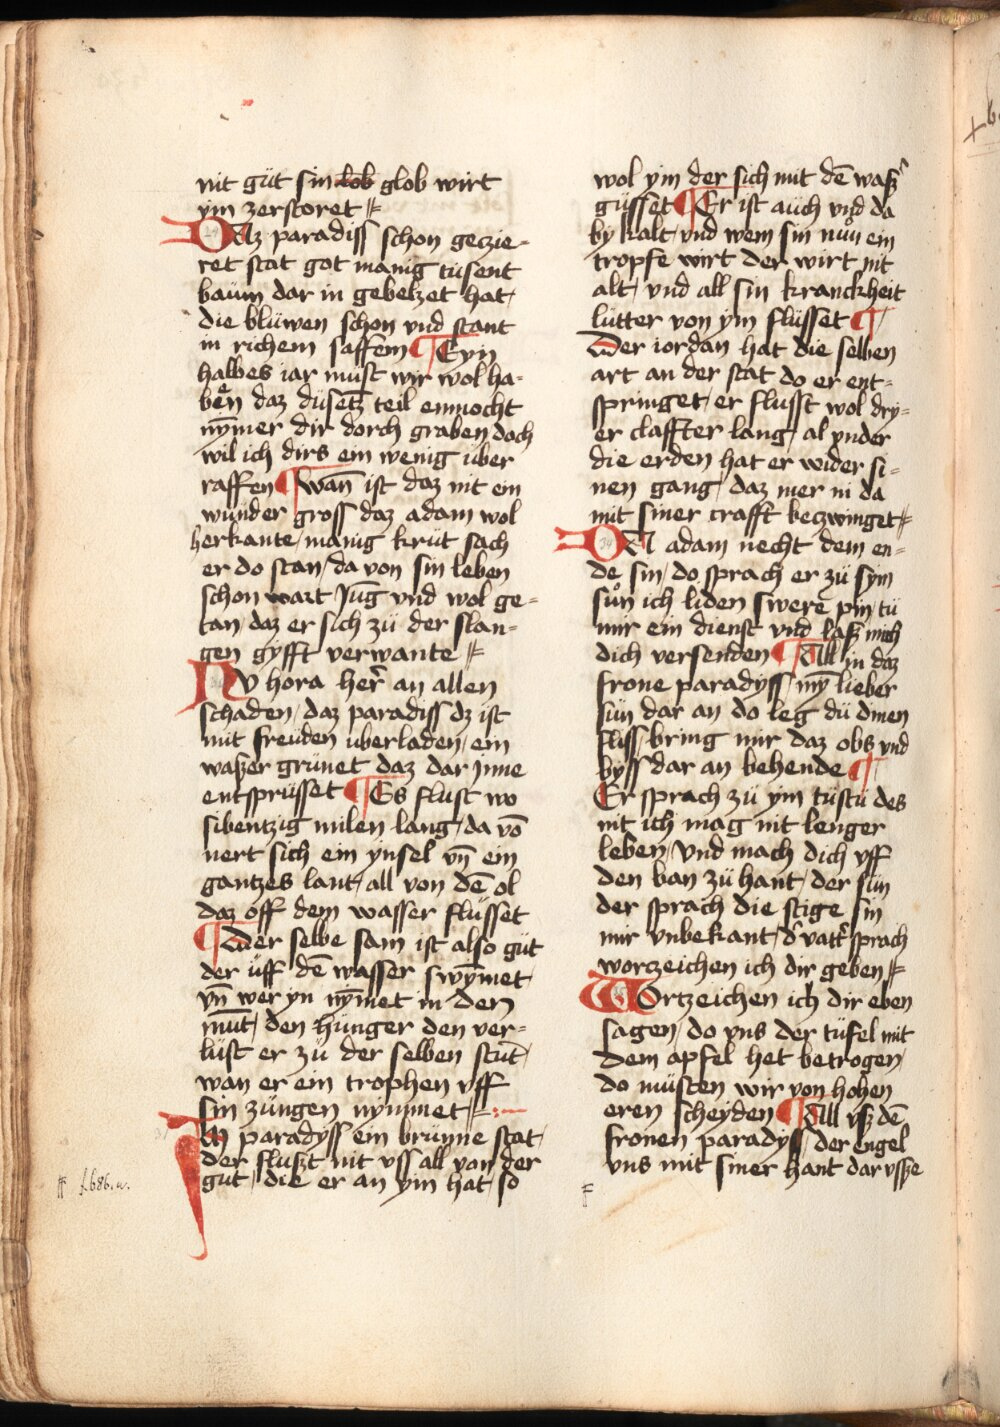 nit güt sin lob glob wirt
ym zerstoret
29
Daz paradiss schon geczie-
ret stat got manig tusent
baüm dar in gebelzet hat,
die blüwen schon vnd stant
in richem saffem ¶ Eyn
halbes iar must wir wol ha-
ben daz düsetz teil enmocht
nȳmer dir dorch graben doch
wil ich dirs ein wenig uber
raffen ¶ wan̄ ist daz nit ein
wunder gross daz adam wol
herkante, manig krüt sach
er do stan, da von sin leben
schon wart Jūg vnd wol ge-
tan, daz er sich zü der slan-
gen gyfft verwante
Nv hora her an allen
schaden, daz paradiss dz ist
mit freuden uberladen, ein
waszer grünet daz dar Jnne
entsprüsset ¶ Es flust wo
sibentzig milen lang, da vō
nert sich ein ynsel vn̄ ein
gantzes lant, all von dē ol
daz off dem wasser flüsset
¶ Der selbe sam ist also güt
der üff dē wasser swȳmet
vn̄ wer yn nȳmet in den
mūt, den hünger den ver-
lüst er zü der selben stūt,
wan er ein trophen vff
sin züngen nymmet
31
In paradyss ein brünne stat,
der fluszt nit vss all van der
gut, die er an ym hat, so
ff f. 686. a.
wol ym der sich mit dē wasz̄
güsset ¶ Er ist auch vnd da
by kalt, vnd wem sin nuͦn ein
tropfe wirt der wirt nit
alt, vnd all sin kranckheit
lütter von ym flüsset ¶
Der iordan hat die selben
art an der stat do er ent-
springet, er flusst wol dry-
er claffter lang, al vnder
die erden hat er wider si-
nen gang, daz mer in da
mit siner crafft beczwinget
34
Da adam necht dem en-
de sin, do sprach er zü sym
suͦn ich liden swere pin tü
mir ein dienst vnd lasz mich
dich versenden ¶ All in daz
frone paradyss, my̅ lieber
sün dar an do leg dü dinen
fliss, bring mir daz obs vnd
byss dar an behende ¶
Er sprach zü ym tüstu des
nit ich mag nit lenger
leben, vnd mach dich vff
den ban zü hant, der sün
der sprach die stige sin
mir vnbekant, d' vatt' sprach
wortzeichen ich dir geben
Wortzeichen ich dir eben
sagen, do vns der tüfel mit
dem apfel het betrogen,
do müsten wir von hohen
eren scheyden ¶ All vsz dē
fronen paradyss, der engel
vns mit siner hant dar vsse